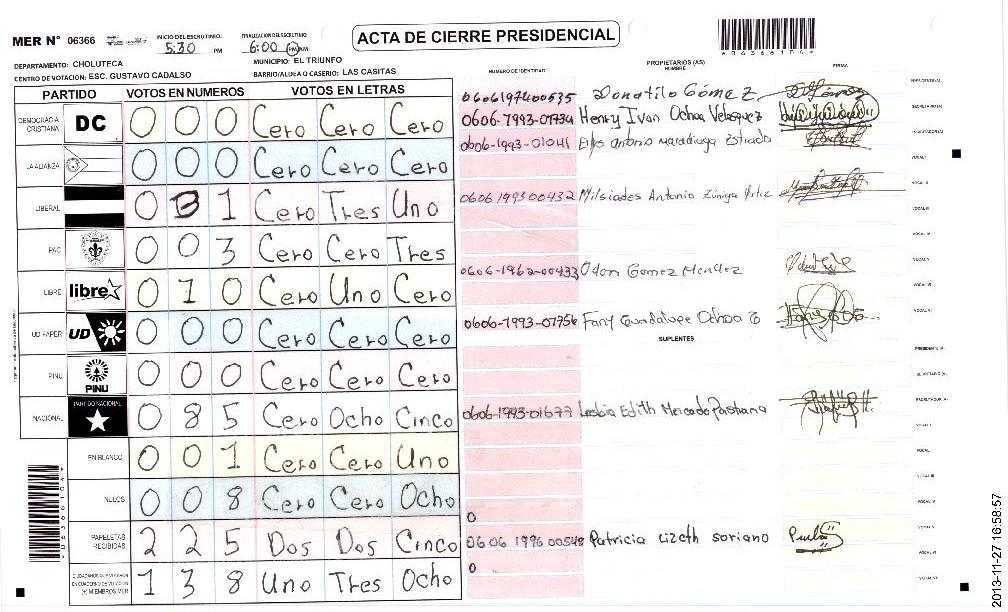 MER N° 06366
INICIO DEL ESCRUTINIO: 5:30 PM
FINALIZACION DEL ESCRUTINIO: 6:00 PM
ACTA DE CIERRE PRESIDENCIAL
06366104
DEPARTAMENTO: CHOLUTECA
MUNICIPIO: EL TRIUNFO
CENTRO DE VOTACION: ESC. GUSTAVO CADALSO
BARRIO/ALDEA O CASERIO: LAS CASITAS
PARTIDO VOTOS EN NUMEROS VOTOS EN LETRAS
NUMERO DE IDENTIDAD PROPIETARIOS (AS) NOMBRE FIRMA
DEMOCRACIA CRISTIANA DC 0 0 0 Cero Cero Cero
LA ALIANZA 0 0 0 Cero Cero Cero
LIBERAL 0 3 1 Cero Tres Uno
PAC 0 0 3 Cero Cero Tres
LIBRE libre 0 1 0 Cero Uno Cero
UD FAPER UD 0 0 0 Cero Cero Cero
PINU PINU 0 0 0 Cero Cero Cero
NACIONAL PARTIDO NACIONAL 0 8 5 Cero Ocho Cinco
EN BLANCO 0 0 1 Cero Cero Uno
NULOS 0 0 8 Cero Cero Ocho
PAPELETAS RECIBIDAS 2 2 5 Dos Dos Cinco
CIUDADANOS QUE VOTARON EN CUADERNO DE VOTACION (+) MIEMBROS MER 1 3 8 Uno Tres Ocho
0606197400535 Donatilo Gómez
0606-1993-01734 Henry Ivan Ochoa Velasquez
0606-1993-01041 Antonio Maradiaga Estrada
0606 1993 00432 Milsiades Antonio Zúniga Ortiz
0606-1962-00433 Odon Gomez Mendez
0606-1993-01756 Fany Guadalupe Ochoa
SUPLENTES
0606-1993-01677 Lesbia Edith Mercado Pastrana
0
0606 1996 00548 Patricia Lizeth Soriano
0
PRESIDENTE(A)
SECRETARIO(A)
ESCRUTADOR(A)
VOCAL I
VOCAL II
VOCAL III
VOCAL IV
VOCAL V
VOCAL VI
VOCAL VII
PRESIDENTE (A)
SECRETARIO (A)
ESCRUTADOR (A)
VOCAL I
VOCAL II
VOCAL III
VOCAL IV
VOCAL V
VOCAL VI
VOCAL VII
2013-11-27 16:58:57